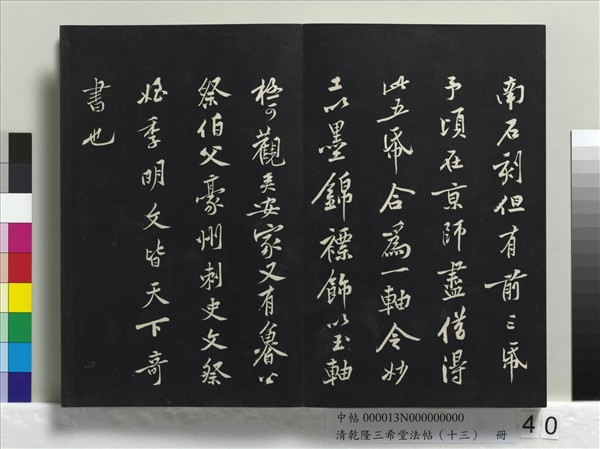 南石刻但有前三紙
予頃在京師盡借得
此五紙合爲一軸令妙
工以墨錦褾飾以玉軸
極可觀矣安家又有魯公
祭伯父豪州刺史文祭
姪季明文皆天下奇
書也
中帖 000013N000000000
清乾隆三希堂法帖（十三） 冊
40